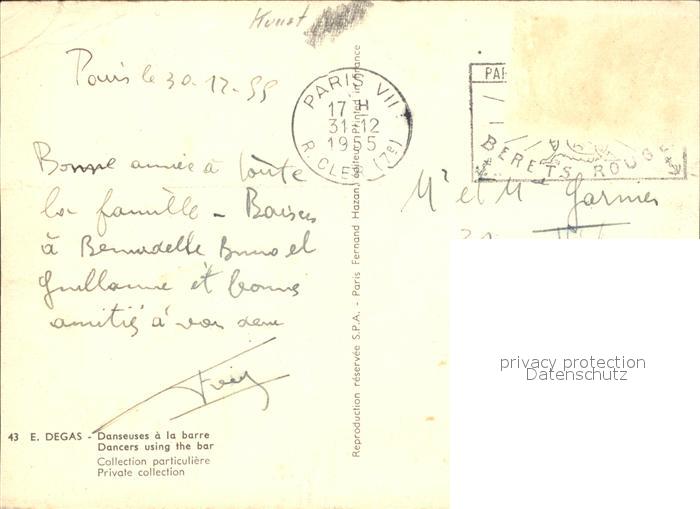 Kunst
Paris le 30-12-55
PARIS VII
17 H
31-12
1955
R. CLER (7e)
PAR
BERETS ROUGE
Bonne année à toute
la famille - Baisers
à Bernadette Bruno et
Guillaume et bonnes
amitiés à vous deux
Mr et Mme Garnier
43 E. DEGAS - Danseuses à la barre
Dancers using the bar
Collection particulière
Private collection
Reproduction réservée S.P.A. - Paris Fernand Hazan, éditeur Printed in France
privacy protection
Datenschutz